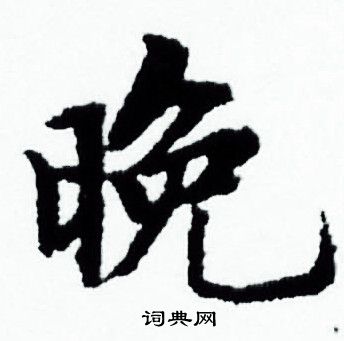 晚
词典网